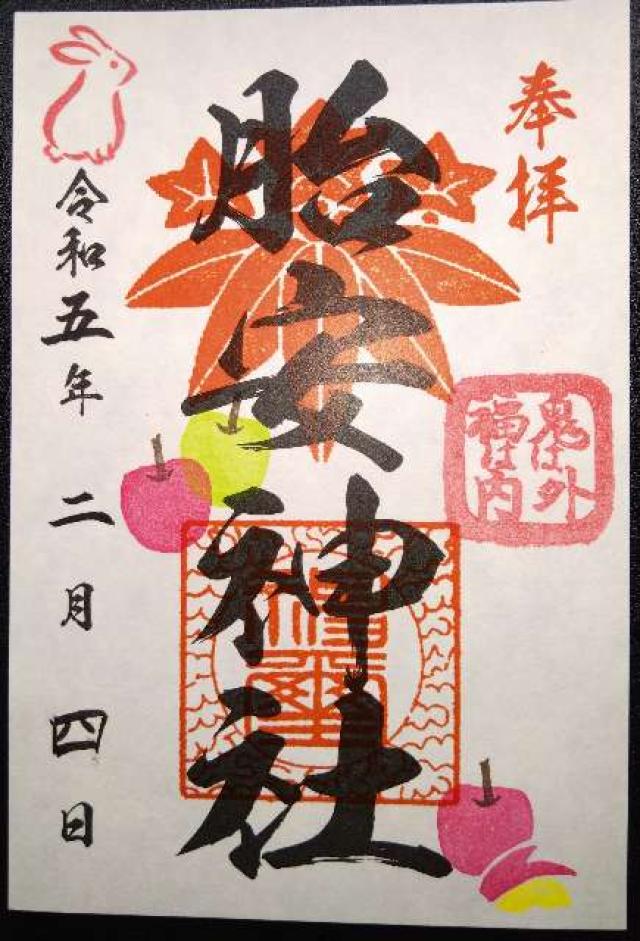 奉拝
胎安神社
鬼は外
福は内
令和五年二月四日